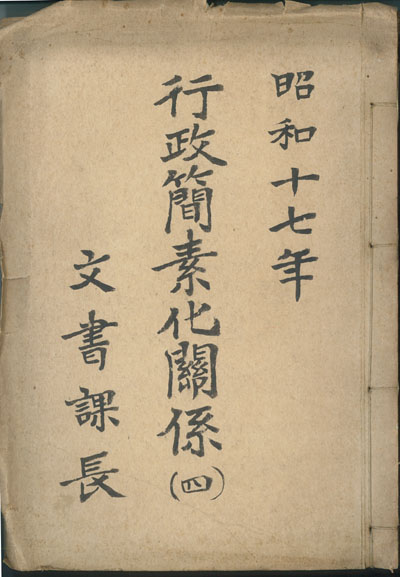 昭和十七年
行政簡素化關係(四)
文書課長